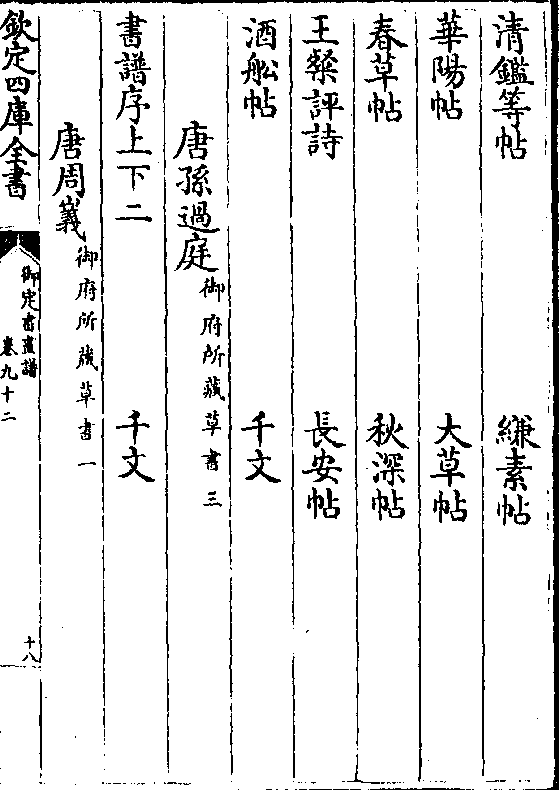 清鑑等帖　縑素帖
華陽帖　大草帖
春草帖　秋深帖
王粲評詩　長安帖
酒舩帖　千文
唐孫過庭御府所藏草書三
書譜序上下二　千文
唐周嶬御府所藏草書一
欽定四庫全書
御定書畫譜
卷九十二
十八